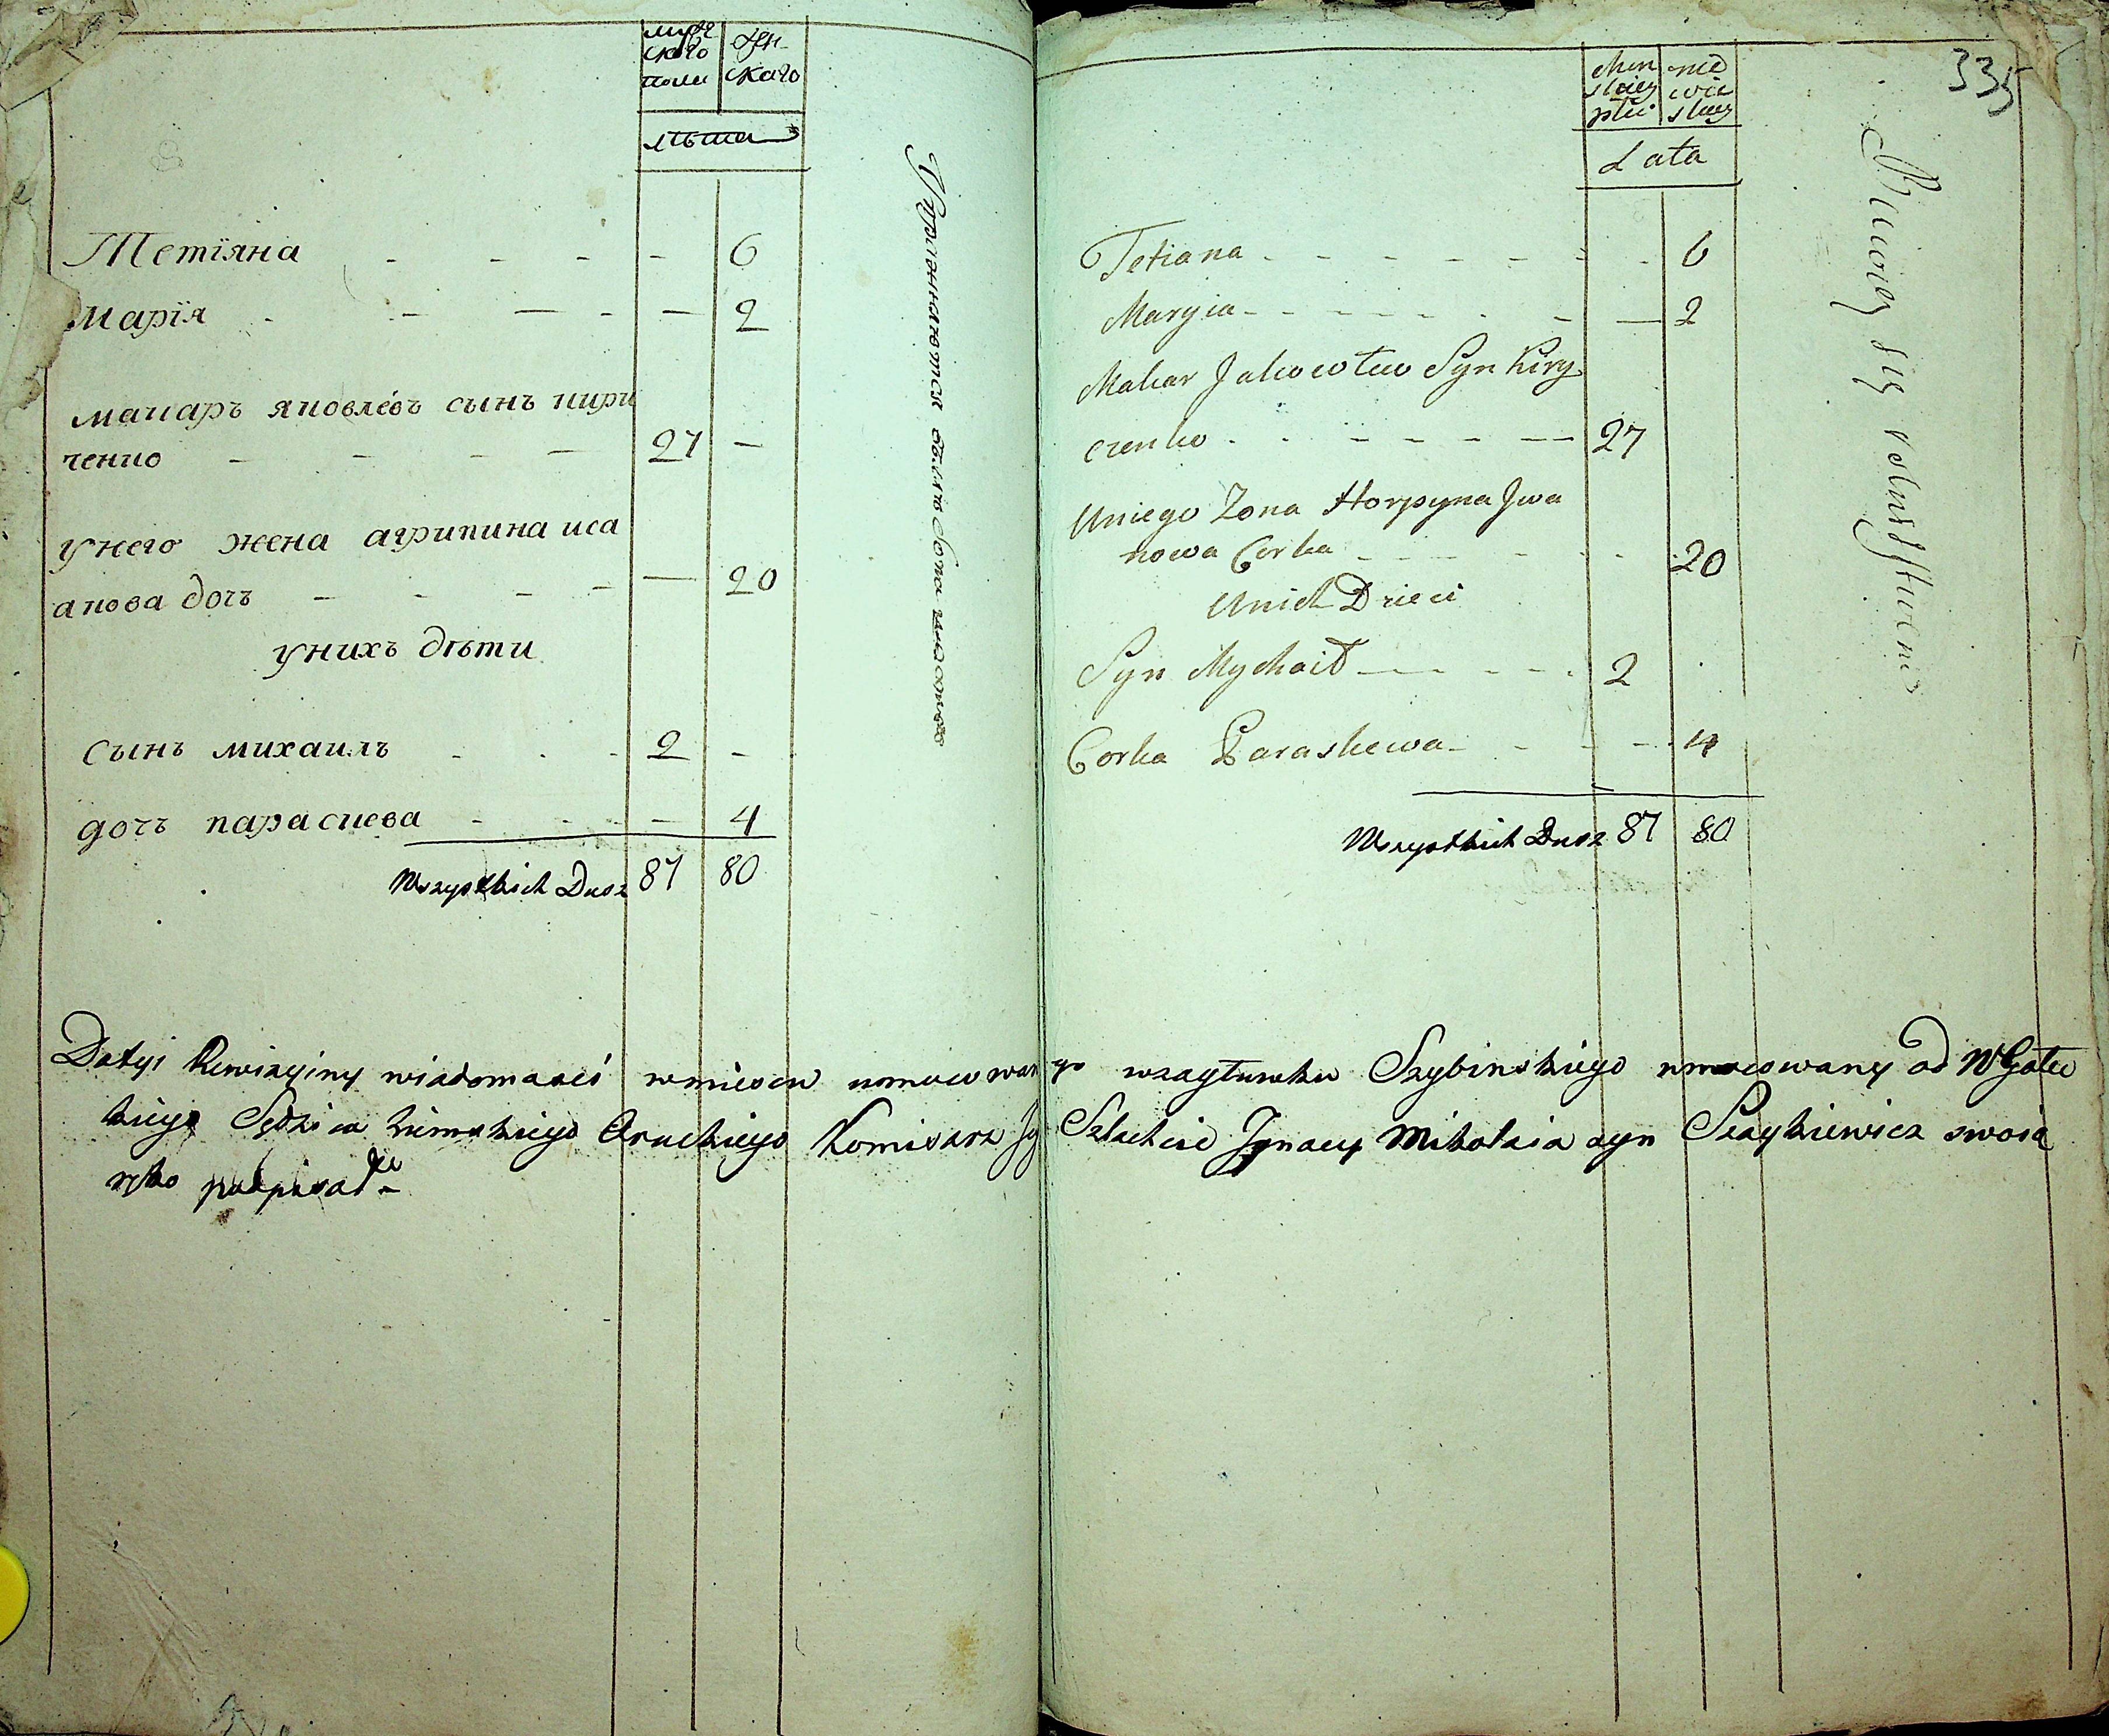 мужескаго пола женскаго
лѣта
Тетіяна - - - - 6
Марїя - - - - - 2
макаръ яковлевъ сынъ кири
ченко - - - - 27 -
унего жена агрипина ива
анова дочъ - - - - - 20
унихъ дѣти
сынъ михаилъ - - - 2 -
дочъ параскева - - - - 4
Wszystkich Dusz 87 80
335
Men
skiey
płci
nie
wie
skiey
Lata
Tetiana - - - - - - - - 6
Maryia - - - - - - - - 2
Makar Jakowlew Syn Kiry
czenko - - - - - - 27
Uniego Zona Horpyna Iwa
nowa Corka - - - - - - 20
Unich Dzieci
Syn Mychail - - - - 2
Corka Paraskewa - - - - 4
Wszystkich Dusz 87 80
Dotyi Rewizyiny wiadomosci wmiescu umocowanego wzaytunku Szybinskiego umocowany od W
kiego Sędzica Ziemskiego Komisarz Szlachcic Ignacy Mikolaia syn swoią
ręko podpisał